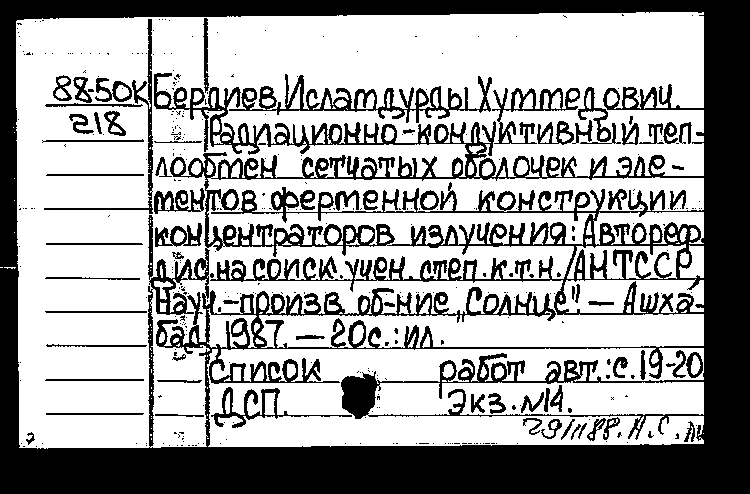 88-50К Бердиев, Исламдурды Хуммедович.
218 Радиационно-кондуктивный теп-
лообмен сетчатых оболочек и эле-
ментов ферменной конструкции
концентраторов излучения: Автореф.
дис. на соиск. учен. степ. к.т.н. /АН ТССР,
Науч.-произв. об-ние „Солнце". — Ашха-
бад, 1987. — 20с.: ил.
Список работ авт.: с. 19-20
ДСП. Экз. №14.
29/II 88. А.С.